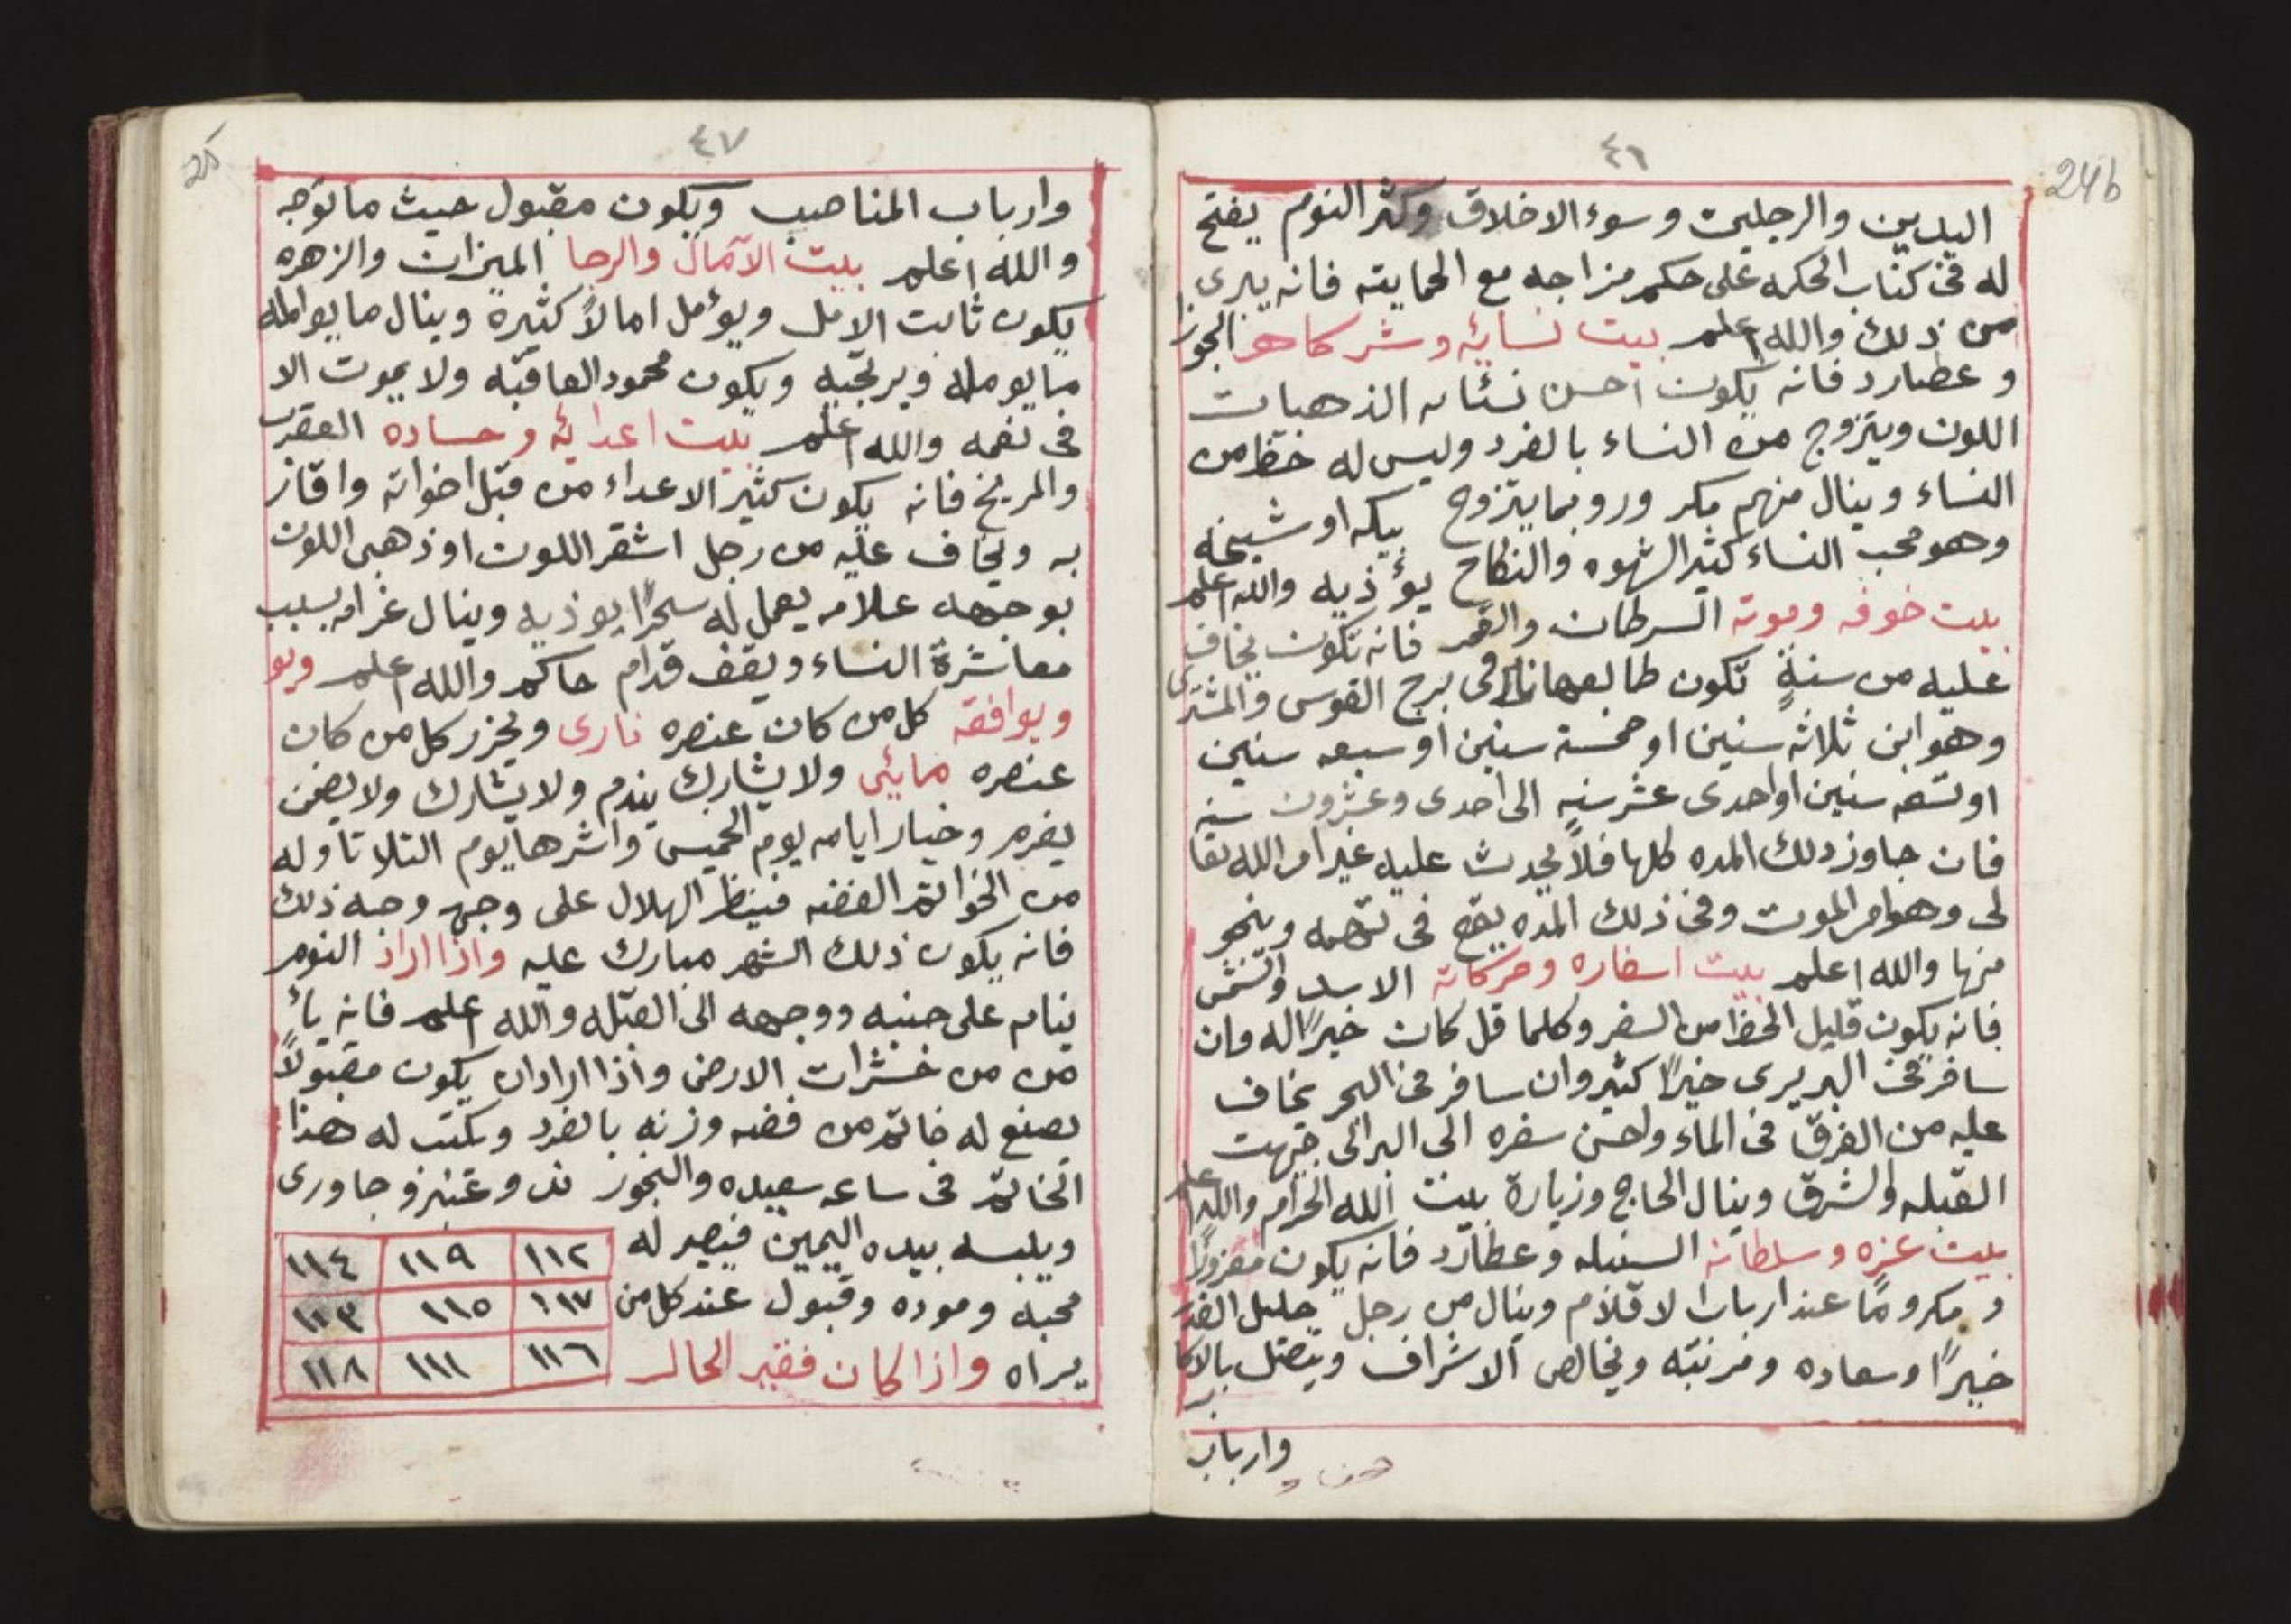 ٤٦
24b
اليدين والرجلين وسوء الاخلاق وكثر النوم يفتح
له فى كتاب الحكمه على حكم مزاجه مع الحمايته فانه يبرى
من ذلك والله اعلم بيت نسايه وشركاه الجوزا
وعطارد فانه يكون احسن نسائه الذهبيات
اللون ويتزوج من النساء بالفرد وليس له حظ من
النساء وينال منهم مكر وروبما يتزوج بيكه او شيخه
وهو محب النساء كثير الشهوه والنكاح يؤذيه والله اعلم
بيت خوفه وموته السرطان والقمر فانه تكون يخاف
عليه من سنةٍ تكون طالعها نازل فى برج القوس والمشترى
وهو ابن ثلاثه سنين او خمسة سنين او سبعه سنين
او تسعه سنين او احدى عشر سنه الى احدى وعشرون سنه
فان جاوز ذلك المده كلها فلا يحدث عليه غير امر الله تعا
لى وهو امر الموت وفى ذلك المده يقع فى تهمه وينجو
منها والله اعلم بيت اسفاره وحركاته الاسد والشمس
فانه يكون قليل الحظ من السفر وكلما قل كان خيرًا له وان
سافر فى البر يرى خيرًا كثير وان سافر فى البحر يخاف
عليه من الغرق فى الماء واحسن سفره الى البر الى جهت
القبله والشرق وينال الحاج وزيارة بيت الله الحرام والله اعلم
بيت عزه وسلطانه السنبله وعطارد فانه يكون معزوزًا
ومكرومًا عند ارباب الاقلام وينال من رجل جليل القدر
خيرًا وسعاده ومرتبه ويخالص الاشراف ويتصل بالاكا
بر
وارباب
٤٧
25
وارباب المناصب ويكون مقبول حيث ما توجه
والله اعلم بيت الآمال والرجا الميزان والزهره
يكون ثابت الامل ويؤمل امالاً كثيرة وينال ما يوامله
ما يومله ويرتجيه ويكون محمود العاقبه ولا يموت الا
فى نعمه والله اعلم بيت اعدائه وحساده العقرب
والمريخ فانه يكون كثير الاعداء من قبل اخواته واقار
به ويخاف عليه من رجل اشقر اللون او ذهبى اللون
بوجهه علامه يعمل له سحرًا يوذيه وينال غرامه بسبب
معاشرة النساء ويقف قدام حاكم والله اعلم ويو
ويوافقه كل من كان عنصره نارى ويحزر كل من كان
عنصره مائى ولا يشارك يندم ولا يشارك ولا يضمن
يغرم وخيار ايامه يوم الخميس واشرها يوم التلاتا وله
من الخواتم الفضه فينظر الهلال على وجه وجه ذلك
فانه يكون ذلك الشهر مبارك عليه واذا اراد النوم
ينام على جنبه ووجهه الى القبله والله اعلم فانه يأ
من من خشرات الارض واذا اراد ان يكون مقبولاً
يصنع له خاتم من فضه وزنه بالفرد ويكتب له هذا
الخاتم فى ساعه سعيده والبخور ند وعنبر وجاورى
ويلبسه بيده اليمين فيصير له
محبه وموده وقبول عند كل من
يراه واذا كان فقير الحال
١١٢ ١١٩ ١١٤
١١٧ ١١٥ ١١٣
١١٦ ١١١ ١١٨